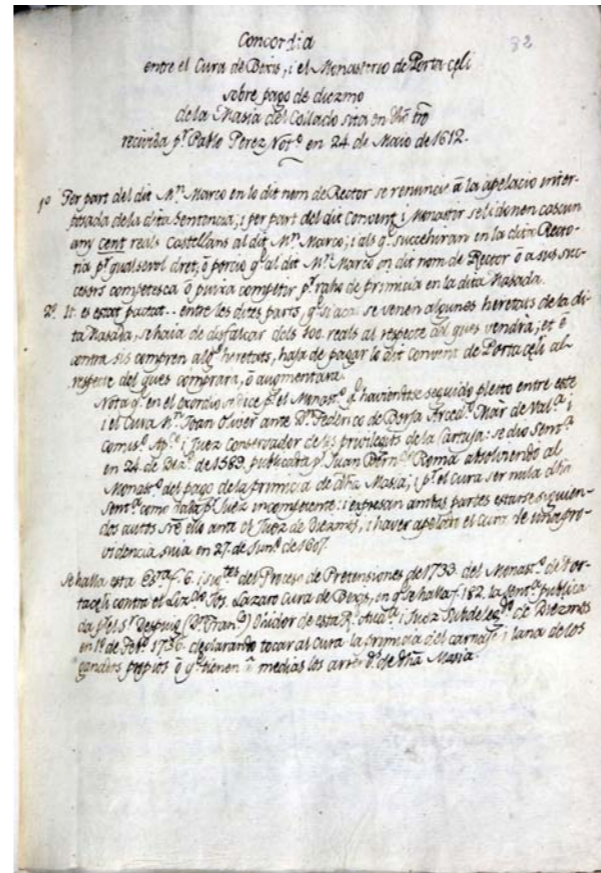 82
Concordia
entre el Cura de Bexis, i el Monasterio de Porta-cęli
sobre pago de diezmo
de la Masia del Collado sita en dho tro
recivida pr Pablo Perez Noto en 24. de Maio de 1612.
1o Per part del dit Mn Marco en lo dit nom de Rector se renuncie â la apelacio inter-
posada de la dita Sentencia; i per part del dit Convent i Monastir seli donen cascun
any cent reals Castellans al dit Mn Marco; i als q succehiran en la dita Recto-
ria pr qualsevol dret, ô porcio q al dit Mn Marco en dit nom de Rector ô a sus suc-
cesors competesca ô puixa competir pr raho de primicia en la dita Masada.
2o It. es estat pactat.. entre les dites parts, q si acas se venen algunes heretats de la di-
ta Masada, se haja de desfalcar dels 100. reals al respecte del ques vendrà; et ê
contra sis compren algs heretats, haja de pagar lo dit convent de Porta-cęli al
respecte del ques comprara, ô augmentara.
Nota q en el exordio se dice pr el Monasto q haviendose seguido pleito entre este
i el Cura Mn Joan Oliver ante Dn Federico de Borja Arcedo Mar de Vala i
Comiso Apo i Juez Conservador de los privilegis de la Cartuja: se dio Senta
en 24. de Deze de 1589. publicada pr Juan Bern Romà absolviendo al
Monasto del pago de la primicia de dha Masia; i pr el cura ser nula dha
Senta como dada pr Juez incompetente: i expresan ambas partes estarse siguien-
dos autos sre ello ante el Juez de Diezmos, i haver apelado el cura de una pro-
videncia suia en 27. de Juno de 1607.
Se halla esta Esra f. 6. i sigtes del Proceso de Pretensiones de 1733. del Monasto de Por-
taceli contra el Lizdo Jos. Lazaro Cura de Bexis, en q se halla f. 182. la senta publica-
da pr el Sr Despuig (Dn Frano) Ohidor de esta Rl Auda i Juez Subdelegdo de Diezmos
en 1o de Febo 1736. declarando tocar al Cura la primicia del carnage i lana de los
ganados propios ô q tienen â medias los arrendos de dha Masia.